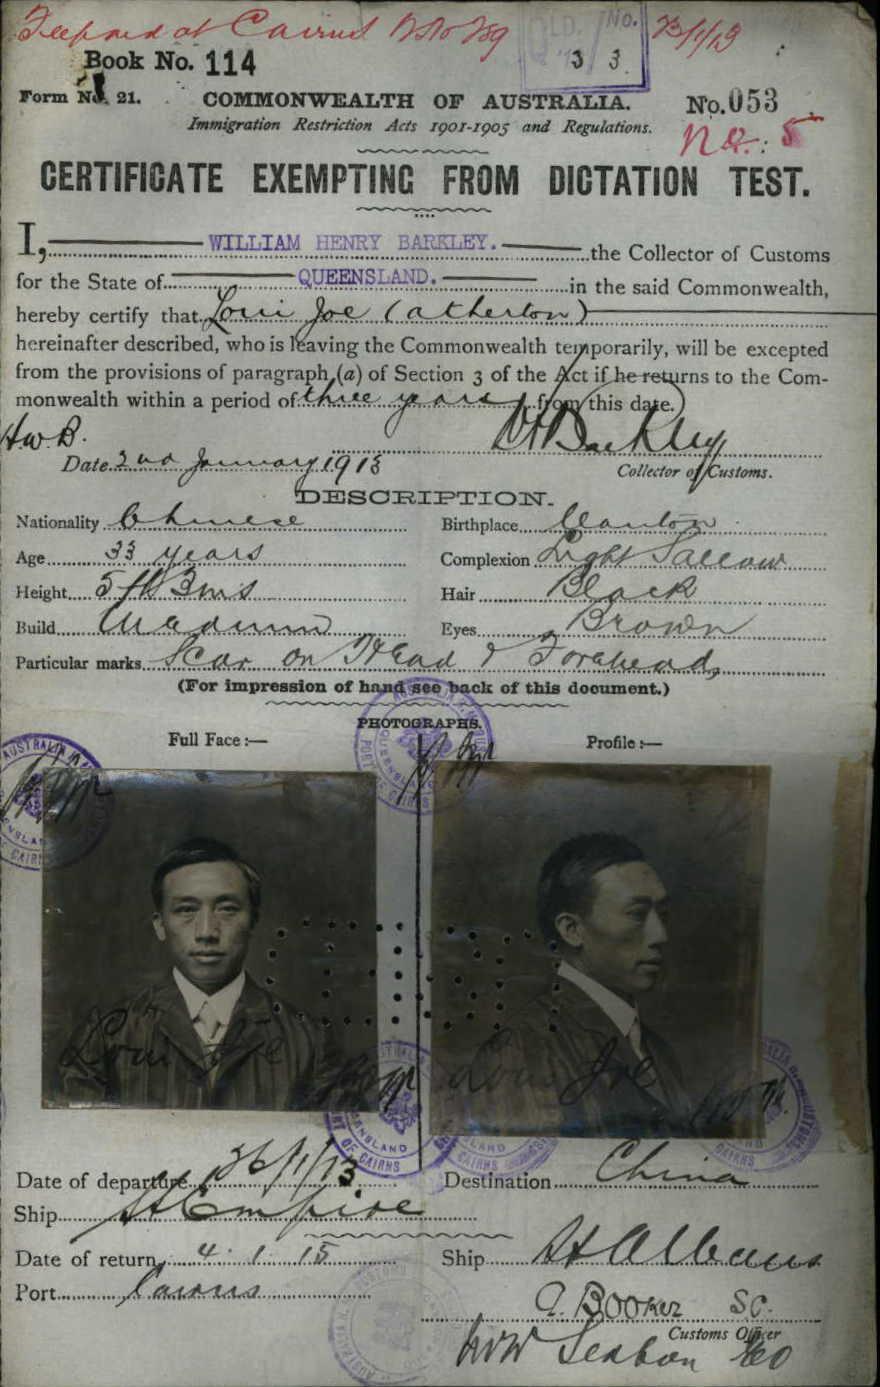 at Cairns 23/1/13
QLD. No.
33
Book No. 114
Form No. 21. COMMONWEALTH OF AUSTRALIA. No. 053
Immigration Restriction Acts 1901-1905 and Regulations.
No.: 5
CERTIFICATE EXEMPTING FROM DICTATION TEST.
I, WILLIAM HENRY BARKLEY. the Collector of Customs
for the State of QUEENSLAND. in the said Commonwealth,
hereby certify that Loui Joe (Atherton)
hereinafter described, who is leaving the Commonwealth temporarily, will be excepted
from the provisions of paragraph (a) of Section 3 of the Act if he returns to the Com-
monwealth within a period of three years from this date.
H.W.B. WHBarkley
Date 2nd January 1913 Collector of Customs.
DESCRIPTION.
Nationality Chinese Birthplace Canton
Age 33 years Complexion Light Sallow
Height 5 ft 3 ins Hair Black
Build Medium Eyes Brown
Particular marks Scar on Head & Forehead,
(For impression of hand see back of this document.)
PHOTOGRAPHS.
Full Face :— Profile :—
Loui Joe Loui Joe
Date of departure 26/1/13 Destination China
Ship St Empire
Date of return 4.1.15 Ship St Albans
Port Cairns
A. Booker S.C.
Customs Officer